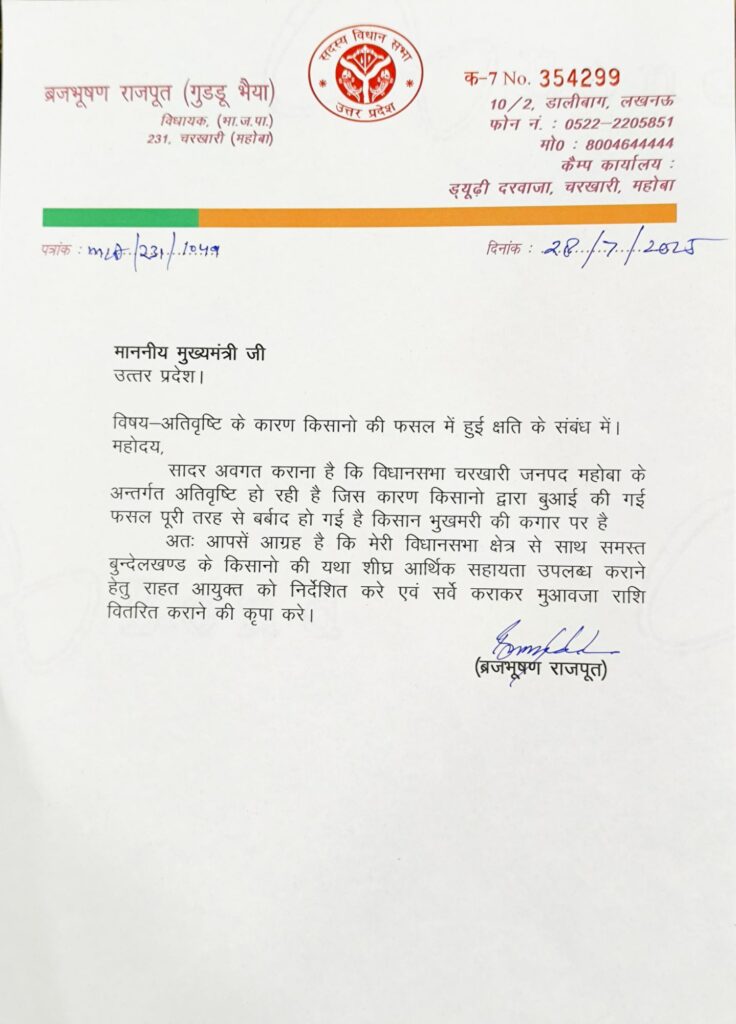 ब्रजभूषण राजपूत (गुडडू भैया)
विधायक, (भा.ज.पा.)
231, चरखारी (महोबा)
सदस्य विधान सभा
उत्तर प्रदेश
क-7 No. 354299
10/2, डालीबाग, लखनऊ
फोन नं. : 0522-2205851
मो0 : 8004644444
कैम्प कार्यालय :
ड्यूढ़ी दरवाजा, चरखारी, महोबा
पत्रांक : MLA/231/1049
दिनांक : 28/7/2025
माननीय मुख्यमंत्री जी
उत्तर प्रदेश।
विषय-अतिवृष्टि के कारण किसानो की फसल में हुई क्षति के संबंध में।
महोदय,
सादर अवगत कराना है कि विधानसभा चरखारी जनपद महोबा के
अन्तर्गत अतिवृष्टि हो रही है जिस कारण किसानो द्वारा बुआई की गई
फसल पूरी तरह से बर्बाद हो गई है किसान भुखमरी की कगार पर है
अतः आपसें आग्रह है कि मेरी विधानसभा क्षेत्र से साथ समस्त
बुन्देलखण्ड के किसानो की यथा शीघ्र आर्थिक सहायता उपलब्ध कराने
हेतु राहत आयुक्त को निर्देशित करे एवं सर्वे कराकर मुआवजा राशि
वितरित कराने की कृपा करे।
(ब्रजभूषण राजपूत)